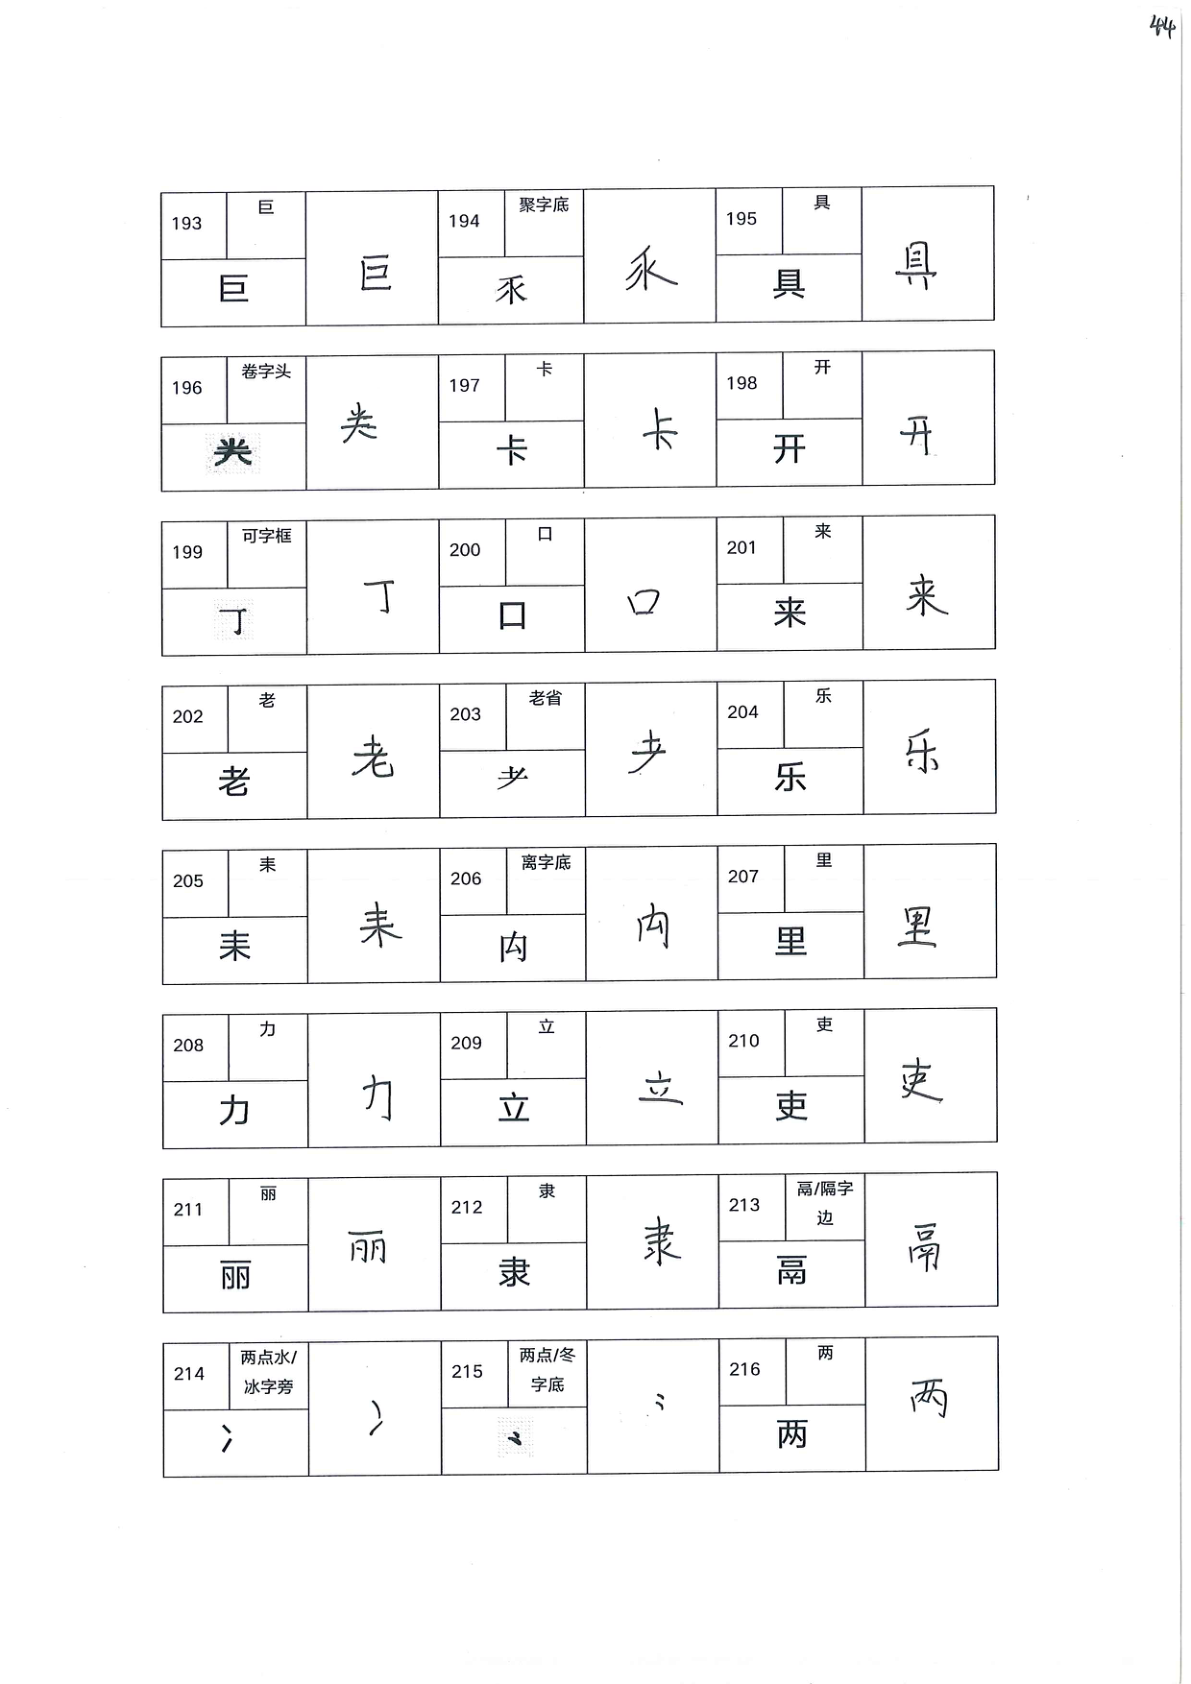 44
193 巨 巨 194 聚字底 乑 195 具 具
巨 乑 具
196 卷字头 龹 197 卡 卡 198 开 开
龹 卡 开
199 可字框 丁 200 口 口 201 来 来
丁 口 来
202 老 老 203 老省 耂 204 乐 乐
老 耂 乐
205 耒 耒 206 离字底 禸 207 里 里
耒 禸 里
208 力 力 209 立 立 210 吏 吏
力 立 吏
211 丽 丽 212 隶 隶 213 鬲/隔字边 鬲
丽 隶 鬲
214 两点水/冰字旁 冫 215 两点/冬字底 ⺀ 216 两 两
冫 ⺀ 两